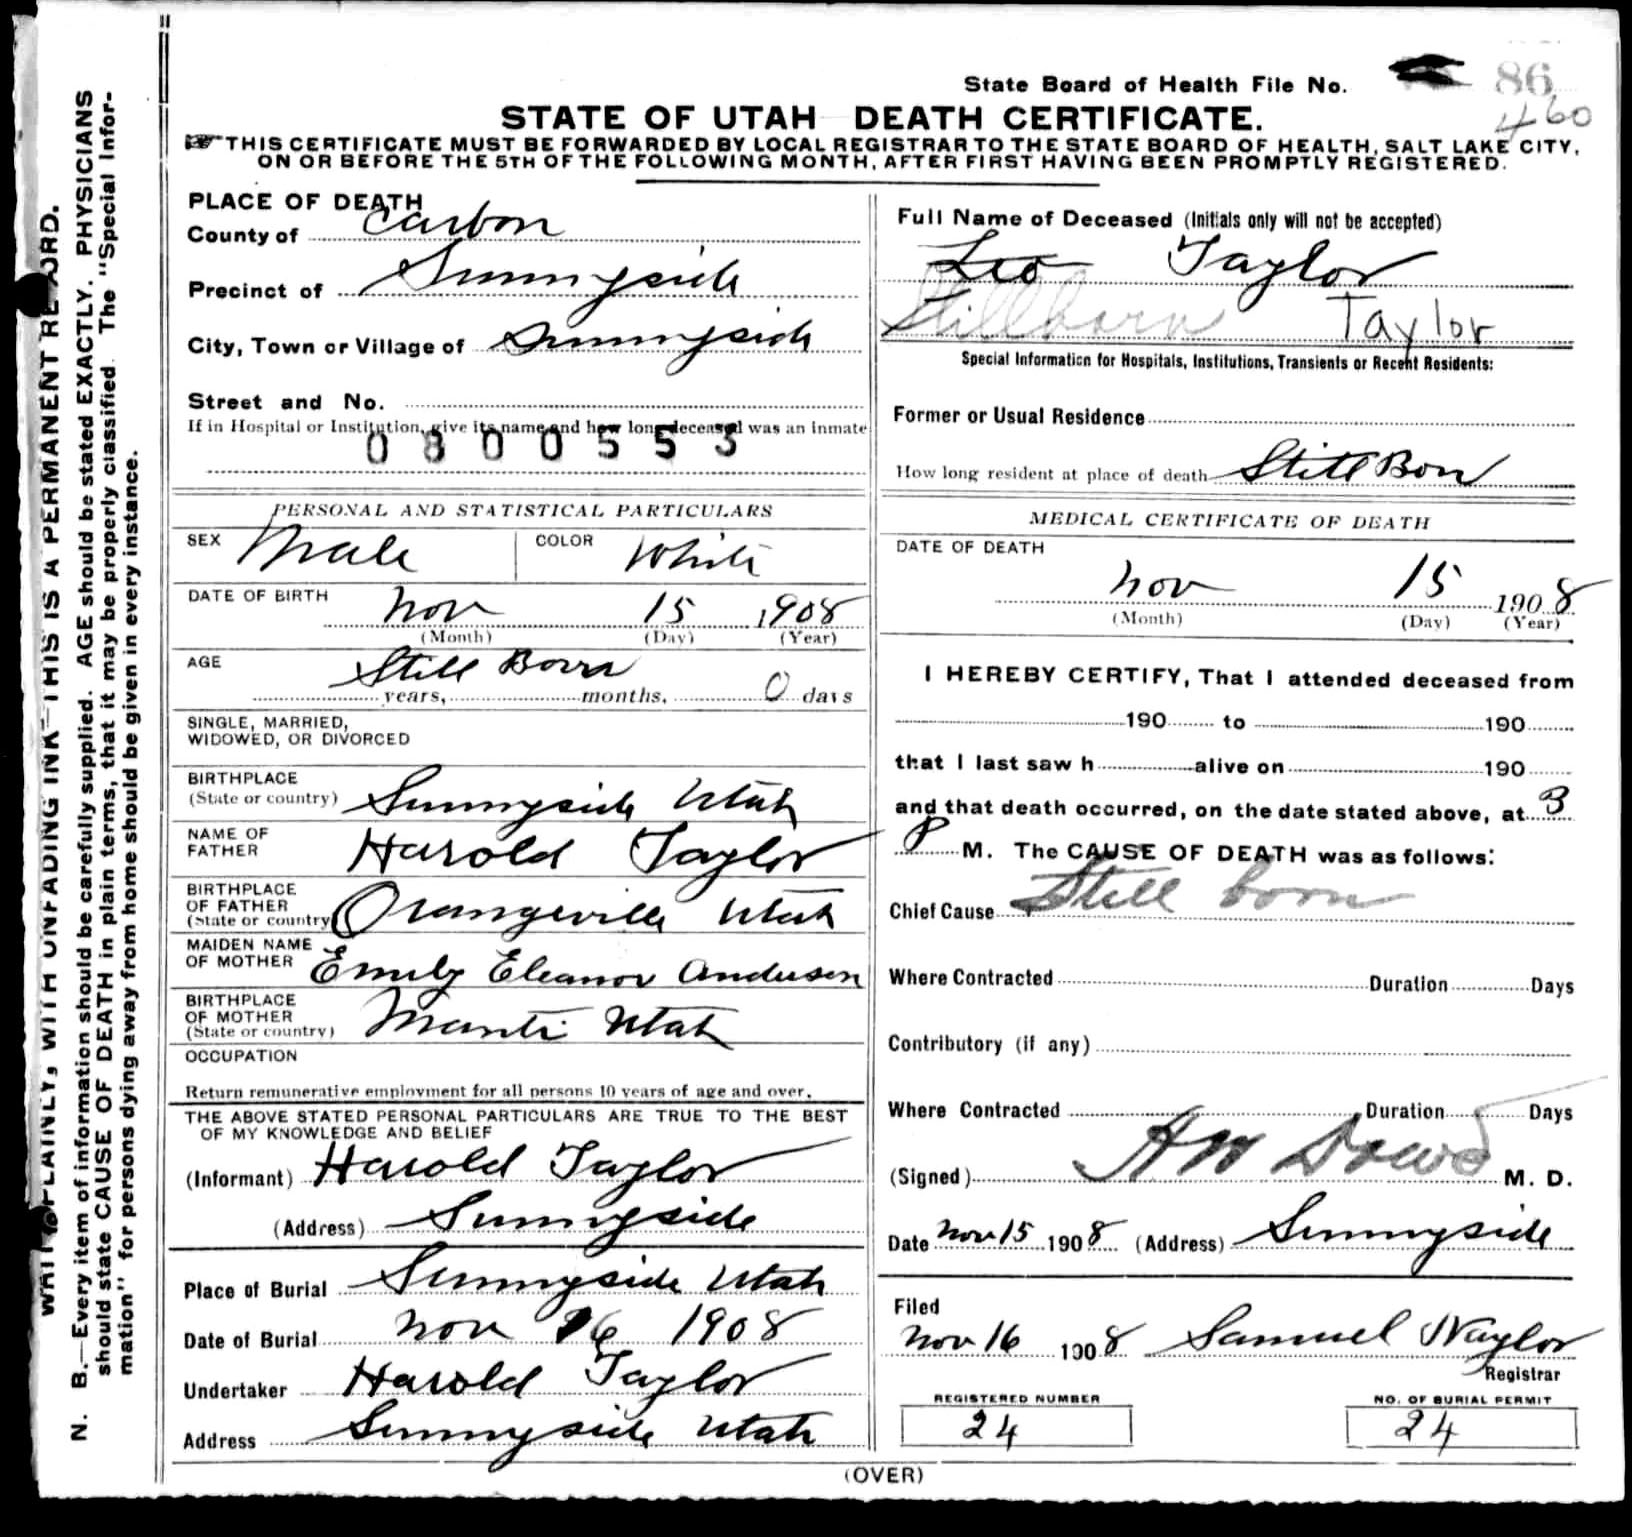 State Board of Health File No. 86
460
STATE OF UTAH DEATH CERTIFICATE.
THIS CERTIFICATE MUST BE FORWARDED BY LOCAL REGISTRAR TO THE STATE BOARD OF HEALTH, SALT LAKE CITY,
ON OR BEFORE THE 5TH OF THE FOLLOWING MONTH, AFTER FIRST HAVING BEEN PROMPTLY REGISTERED.
WRITE PLAINLY, WITH UNFADING INK—THIS IS A PERMANENT RECORD.
N. B.—Every item of information should be carefully supplied. AGE should be stated EXACTLY. PHYSICIANS
should state CAUSE OF DEATH in plain terms, that it may be properly classified. The "Special Infor-
mation" for persons dying away from home should be given in every instance.
PLACE OF DEATH
County of Carbon
Precinct of Sunnyside
City, Town or Village of Sunnyside
Street and No.
If in Hospital or Institution, give its name and how long deceased was an inmate
0800553
PERSONAL AND STATISTICAL PARTICULARS
SEX Male COLOR White
DATE OF BIRTH Nov 15 1908
(Month) (Day) (Year)
AGE Still Born
years, months, 0 days
SINGLE, MARRIED,
WIDOWED, OR DIVORCED
BIRTHPLACE
(State or country) Sunnyside Utah
NAME OF
FATHER Harold Taylor
BIRTHPLACE
OF FATHER
(State or country) Orangeville Utah
MAIDEN NAME
OF MOTHER Emily Eleanor Andersen
BIRTHPLACE
OF MOTHER
(State or country) Manti Utah
OCCUPATION
Return remunerative employment for all persons 10 years of age and over.
THE ABOVE STATED PERSONAL PARTICULARS ARE TRUE TO THE BEST
OF MY KNOWLEDGE AND BELIEF
(Informant) Harold Taylor
(Address) Sunnyside
Place of Burial Sunnyside Utah
Date of Burial Nov 16 1908
Undertaker Harold Taylor
Address Sunnyside Utah
Full Name of Deceased (Initials only will not be accepted)
Leo Taylor
Stillborn Taylor
Special Information for Hospitals, Institutions, Transients or Recent Residents:
Former or Usual Residence
How long resident at place of death Still Bon
MEDICAL CERTIFICATE OF DEATH
DATE OF DEATH
Nov 15 1908
(Month) (Day) (Year)
I HEREBY CERTIFY, That I attended deceased from
190 to 190
that I last saw h alive on 190
and that death occurred, on the date stated above, at 3
P M. The CAUSE OF DEATH was as follows:
Chief Cause Still born
Where Contracted Duration Days
Contributory (if any)
Where Contracted Duration Days
(Signed) M. D.
Date Nov 15 1908 (Address) Sunnyside
Filed
Nov 16 1908 Samuel Naylor
Registrar
REGISTERED NUMBER NO. OF BURIAL PERMIT
24 24
(OVER)